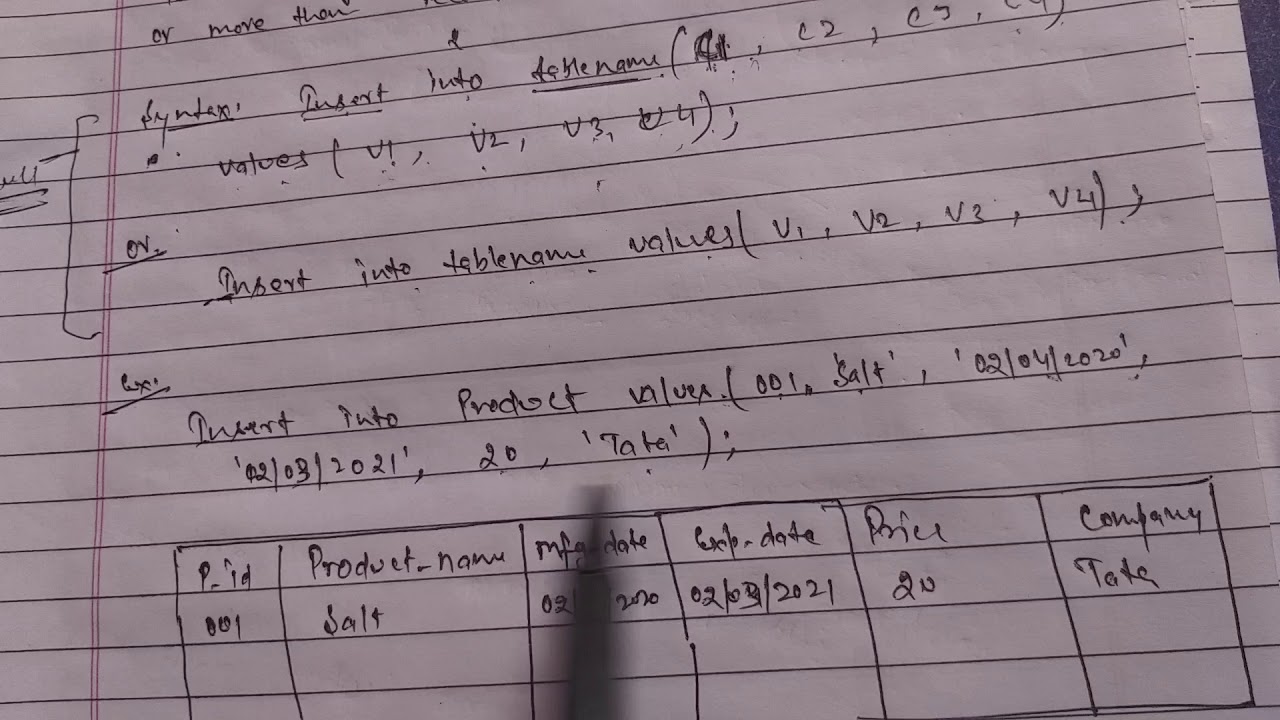 or more than
Syntax: Insert into tablename (C1, C2, C3, C4)
values (V1, V2, V3, V4);
or
Insert into tablename values (V1, V2, V3, V4);
Ex:
Insert into Product values (001, 'Salt', '02/04/2020',
'02/03/2021', 20, 'Tata');
P_id Product_name mfg_date Exp_date Price Company
001 Salt 02/ 2020 02/03/2021 20 Tata